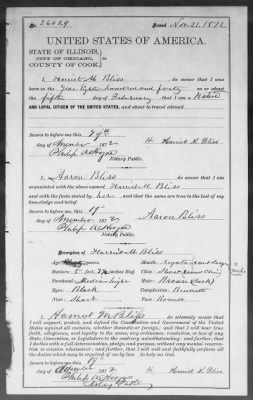 No. 26029 Issued Nov. 21, 1872
UNITED STATES OF AMERICA.
STATE OF ILLINOIS,
CITY OF CHICAGO,
COUNTY OF COOK. } ss
I Harriet M Bliss, do swear that I was
born in the Year Eight hundred and forty on or about
the fifth day of February that I am a Native
AND LOYAL CITIZEN OF THE UNITED STATES, and about to travel abroad.
Sworn to before me this 19th
day of November 1872 H Harriet M. Bliss
Philip A Hoyne
Notary Public.
I, Aaron Bliss, do swear that I am
acquainted with the above named Harriet M. Bliss and
with the facts stated by her, and that the same are true to the best of my
knowledge and belief
Sworn to before me this 19th
day of November 1872 Aaron Bliss
Philip A Hoyne
Notary Public.
Description of Harriet M Bliss
Age: Mouth:
Stature: 5 feet 2 inches Eng. Chin: Short
Forehead: Medium Hair: Brown (dark)
Eyes: Black Complexion: Brunette
Nose: Short Face: Round
I, Harriet M Bliss do solemnly swear that I
will support, protect, and defend the Constitution and Government of the United
States against all enemies, whether domestic or foreign; and that I will bear true
faith, allegiance, and loyalty to the same, any ordinance, resolution, or law of any
State, Convention, or Legislature to the contrary notwithstanding; and further, that
I do this with a full determination, pledge, and purpose, without any mental reservation
or evasion whatsoever; and further, that I will well and faithfully perform all
the duties which may be required of me by law. So help me God.
Sworn to before me this 19
day of November 1872 H Harriet M. Bliss
Philip A Hoyne